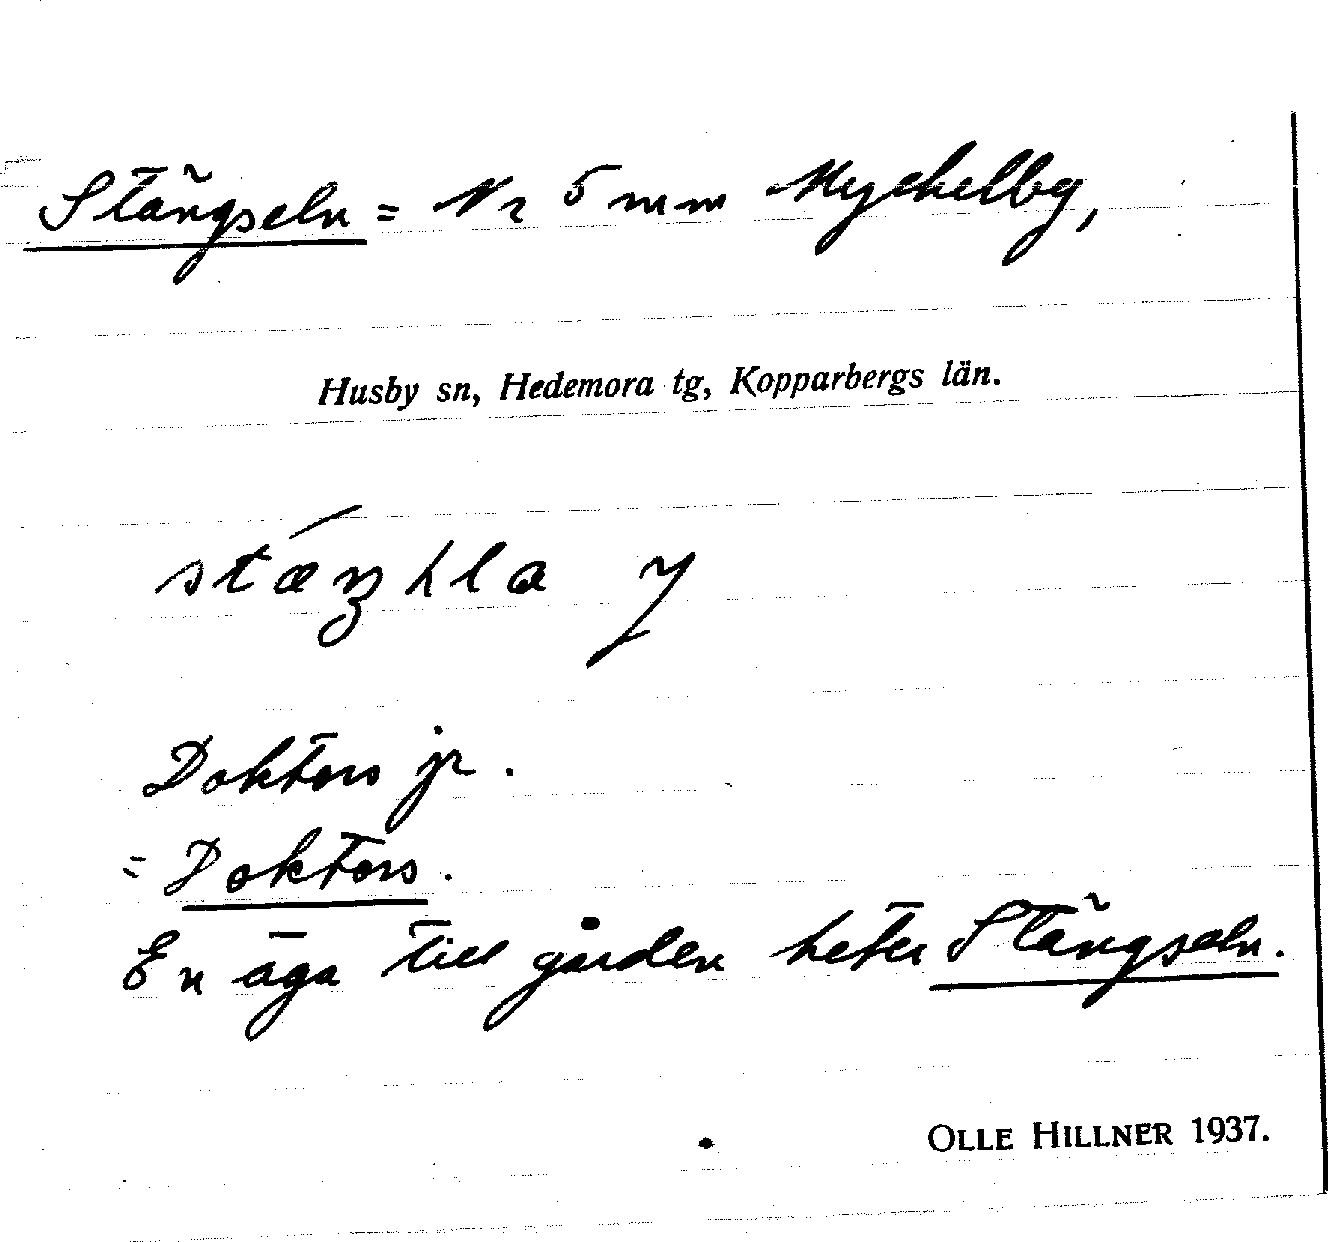 Stängseln = Nr 5 mm Myckelby,
Husby sn, Hedemora tg, Kopparbergs län.
Doktors jr.
= Doktors.
En äga till gården heter Stängseln.
OLLE HILLNER 1937.